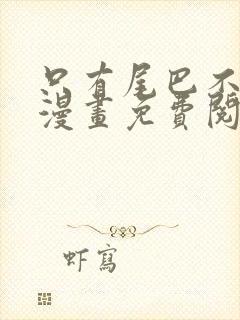 只有尾巴不
漫畫免費閱
虾寫